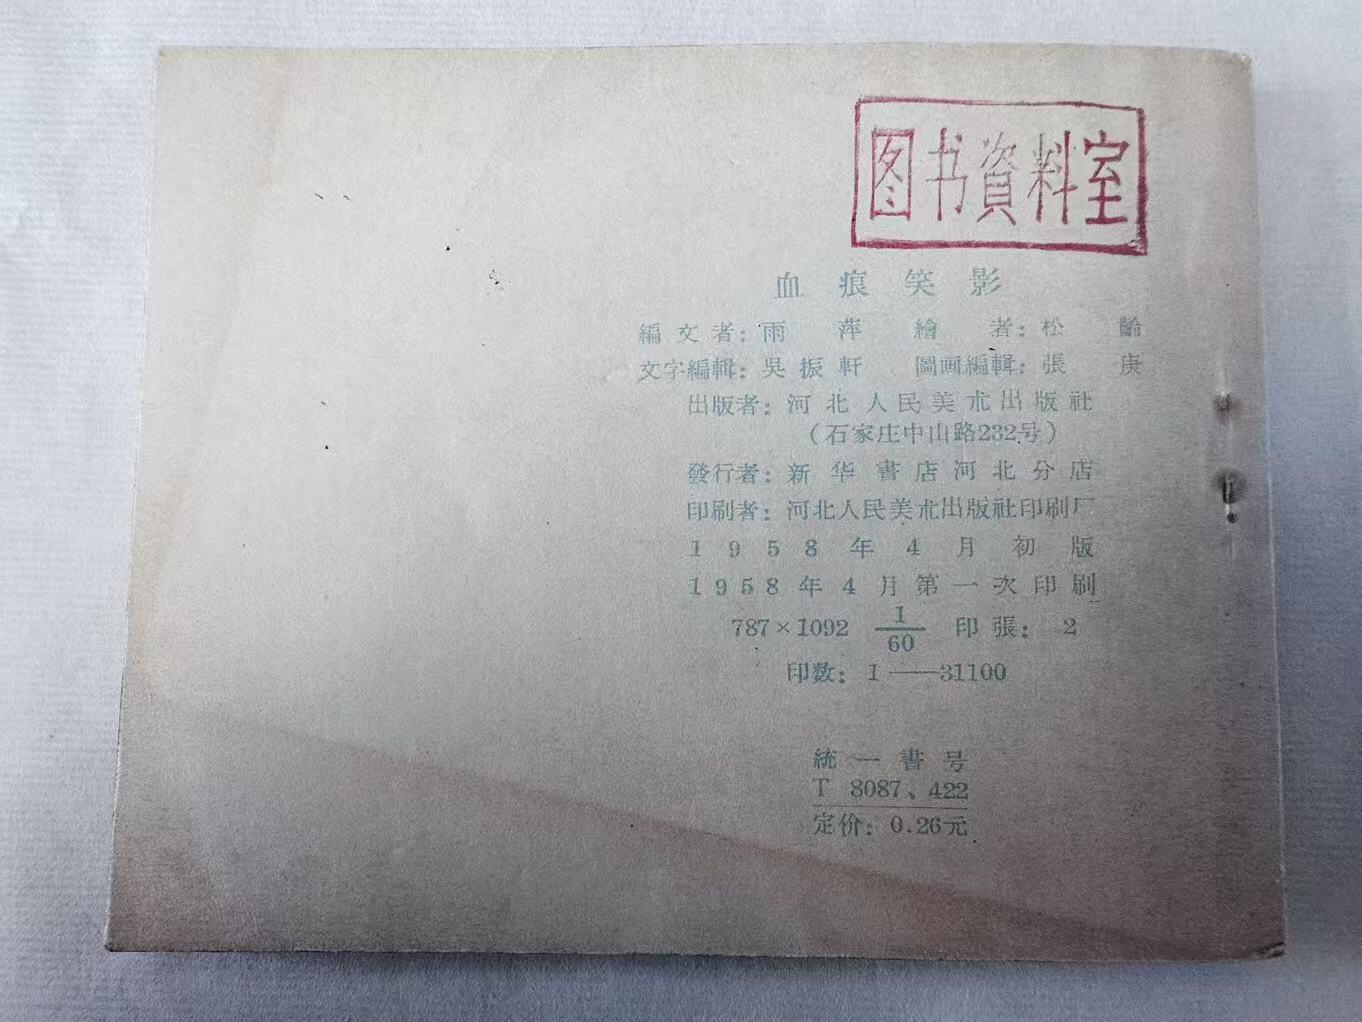 图书資料室
血痕笑影
編文者：雨萍 繪者：松齡
文字編輯：吳振軒 圖画編輯：張庚
出版者：河北人民美朮出版社
（石家庄中山路232号）
發行者：新华書店河北分店
印刷者：河北人民美朮出版社印刷厂
1958年4月初版
1958年4月第一次印刷
787×1092 1/60 印張：2
印数：1——31100
統一書号
T 8087、422
定价：0.26元